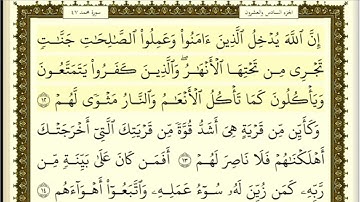 سورة محمد ٤٧
الجزء السادس والعشرون
إِنَّ ٱللَّهَ يُدْخِلُ ٱلَّذِينَ ءَامَنُوا۟ وَعَمِلُوا۟ ٱلصَّٰلِحَٰتِ جَنَّٰتٍ
تَجْرِى مِن تَحْتِهَا ٱلْأَنْهَٰرُ ۖ وَٱلَّذِينَ كَفَرُوا۟ يَتَمَتَّعُونَ
وَيَأْكُلُونَ كَمَا تَأْكُلُ ٱلْأَنْعَٰمُ وَٱلنَّارُ مَثْوًى لَّهُمْ ١٢
وَكَأَيِّن مِّن قَرْيَةٍ هِىَ أَشَدُّ قُوَّةً مِّن قَرْيَتِكَ ٱلَّتِىٓ أَخْرَجَتْكَ
أَهْلَكْنَٰهُمْ فَلَا نَاصِرَ لَهُمْ ١٣ أَفَمَن كَانَ عَلَىٰ بَيِّنَةٍ مِّن
رَّبِّهِۦ كَمَن زُيِّنَ لَهُۥ سُوٓءُ عَمَلِهِۦ وَٱتَّبَعُوٓا۟ أَهْوَآءَهُم ١٤